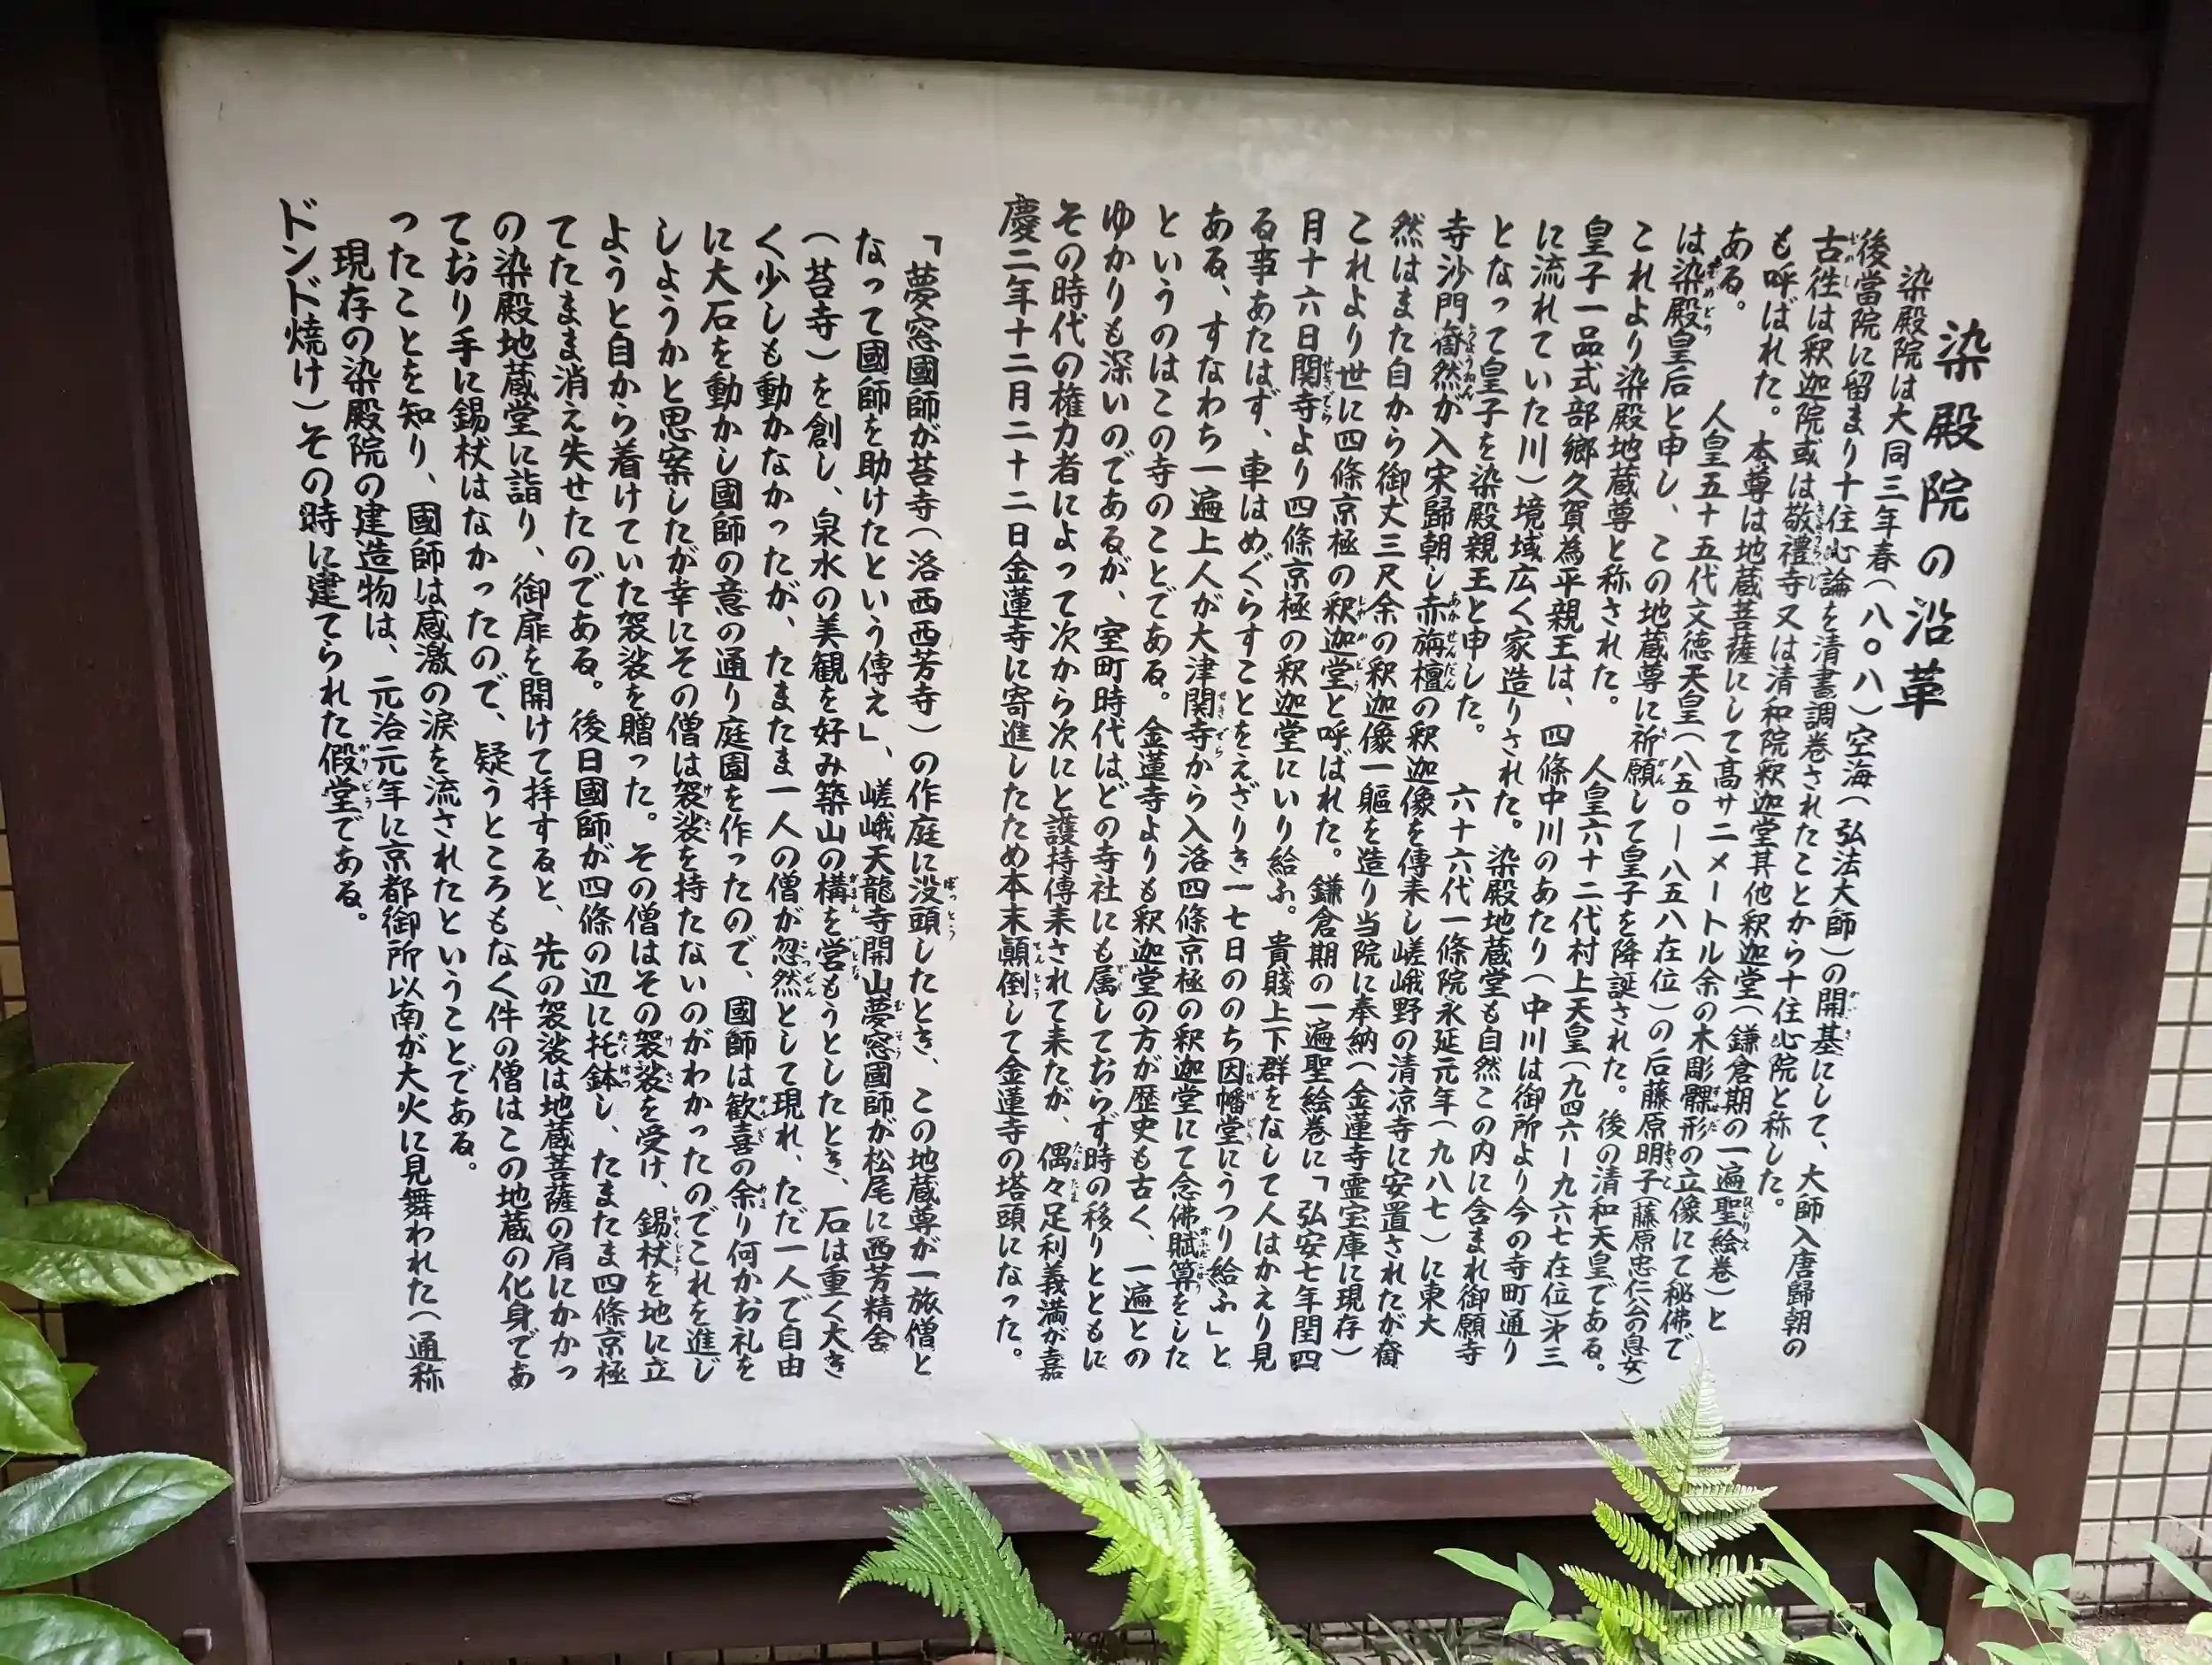 染殿院の沿革
染殿院は大同三年春(八〇八)空海(弘法大師)の開基にして、大師入唐歸朝の
後當院に留まり十住心論を清書調巻されたことから十住心院と称した。
古徃は釈迦院或は敬禮寺又は清和院釈迦堂其他釈迦堂(鎌倉期の一遍聖絵巻)と
も呼ばれた。本尊は地蔵菩薩にして高サ二メートル余の木彫髁形の立像にて秘佛で
ある。 人皇五十五代文徳天皇(八五〇ー八五八在位)の后藤原明子(藤原忠仁公の息女)
は染殿皇后と申し、この地蔵尊に祈願して皇子を降誕された。後の清和天皇である。
これより染殿地蔵尊と称された。 人皇六十二代村上天皇(九四六ー九六七在位)才三
皇子一品式部郷久賀為平親王は、四條中川のあたり(中川は御所より今の寺町通り
に流れていた川)境域広く家造りされた。染殿地蔵堂も自然この内に含まれ御願寺
となって皇子を染殿親王と申した。 六十六代一條院永延元年(九八七)に東大
寺沙門奝然が入宋歸朝し赤旃檀の釈迦像を傳来し嵯峨野の清凉寺に安置されたが奝
然はまた自から御丈三尺余の釈迦像一軀を造り当院に奉納(金蓮寺霊宝庫に現存)
これより世に四條京極の釈迦堂と呼ばれた。鎌倉期の一遍聖絵巻に「弘安七年閏四
月十六日関寺より四條京極の釈迦堂にいり給ふ。貴賤上下群をなして人はかえり見
る事あたはず、車はめぐらすことをえざりき一七日ののち因幡堂にうつり給ふ」と
ある、すなわち一遍上人が大津関寺から入洛四條京極の釈迦堂にて念佛賦算をした
というのはこの寺のことである。金蓮寺よりも釈迦堂の方が歴史も古く、一遍との
ゆかりも深いのであるが、室町時代はどの寺社にも属しておらず時の移りとともに
その時代の権力者によって次から次にと護持傳来されて来たが、偶々足利義満が嘉
慶二年十二月二十二日金蓮寺に寄進したため本末顛倒して金蓮寺の塔頭になった。
「夢窓國師が苔寺(洛西西芳寺)の作庭に没頭したとき、この地蔵尊が一旅僧と
なって國師を助けたという傳え」、嵯峨天龍寺開山夢窓國師が松尾に西芳精舎
(苔寺)を創し、泉水の美観を好み築山の構を営もうとしたとき、石は重く大き
く少しも動かなかったが、たまたま一人の僧が忽然として現れ、ただ一人で自由
に大石を動かし國師の意の通り庭園を作ったので、國師は歓喜の余り何かお礼を
しようかと思案したが幸にその僧は袈裟を持たないのがわかったのでこれを進じ
ようと自から着けていた袈裟を贈った。その僧はその袈裟を受け、錫杖を地に立
てたまま消え失せたのである。後日國師が四條の辺に托鉢し、たまたま四條京極
の染殿地蔵堂に詣り、御扉を開けて拝すると、先の袈裟は地蔵菩薩の肩にかかっ
ており手に錫杖はなかったので、疑うところもなく件の僧はこの地蔵の化身であ
ったことを知り、國師は感激の涙を流されたということである。
現存の染殿院の建造物は、元治元年に京都御所以南が大火に見舞われた(通称
ドンド焼け)その時に建てられた假堂である。